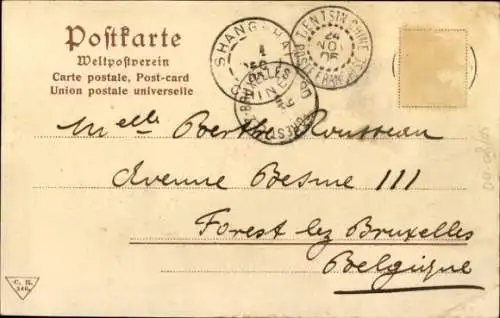 Postkarte
Weltpostverein
Carte postale, Post-card
Union postale universelle
SHANG-HAI
1
DEC
05
CHINE
TIENTSIN CHINE
24
NOV
05
POSTE FRANÇAISE
BRUXELLES
FOREST
Melle Berthe Rousseau
Avenue Besme 111
Forest lez Bruxelles
Belgique
C. H.